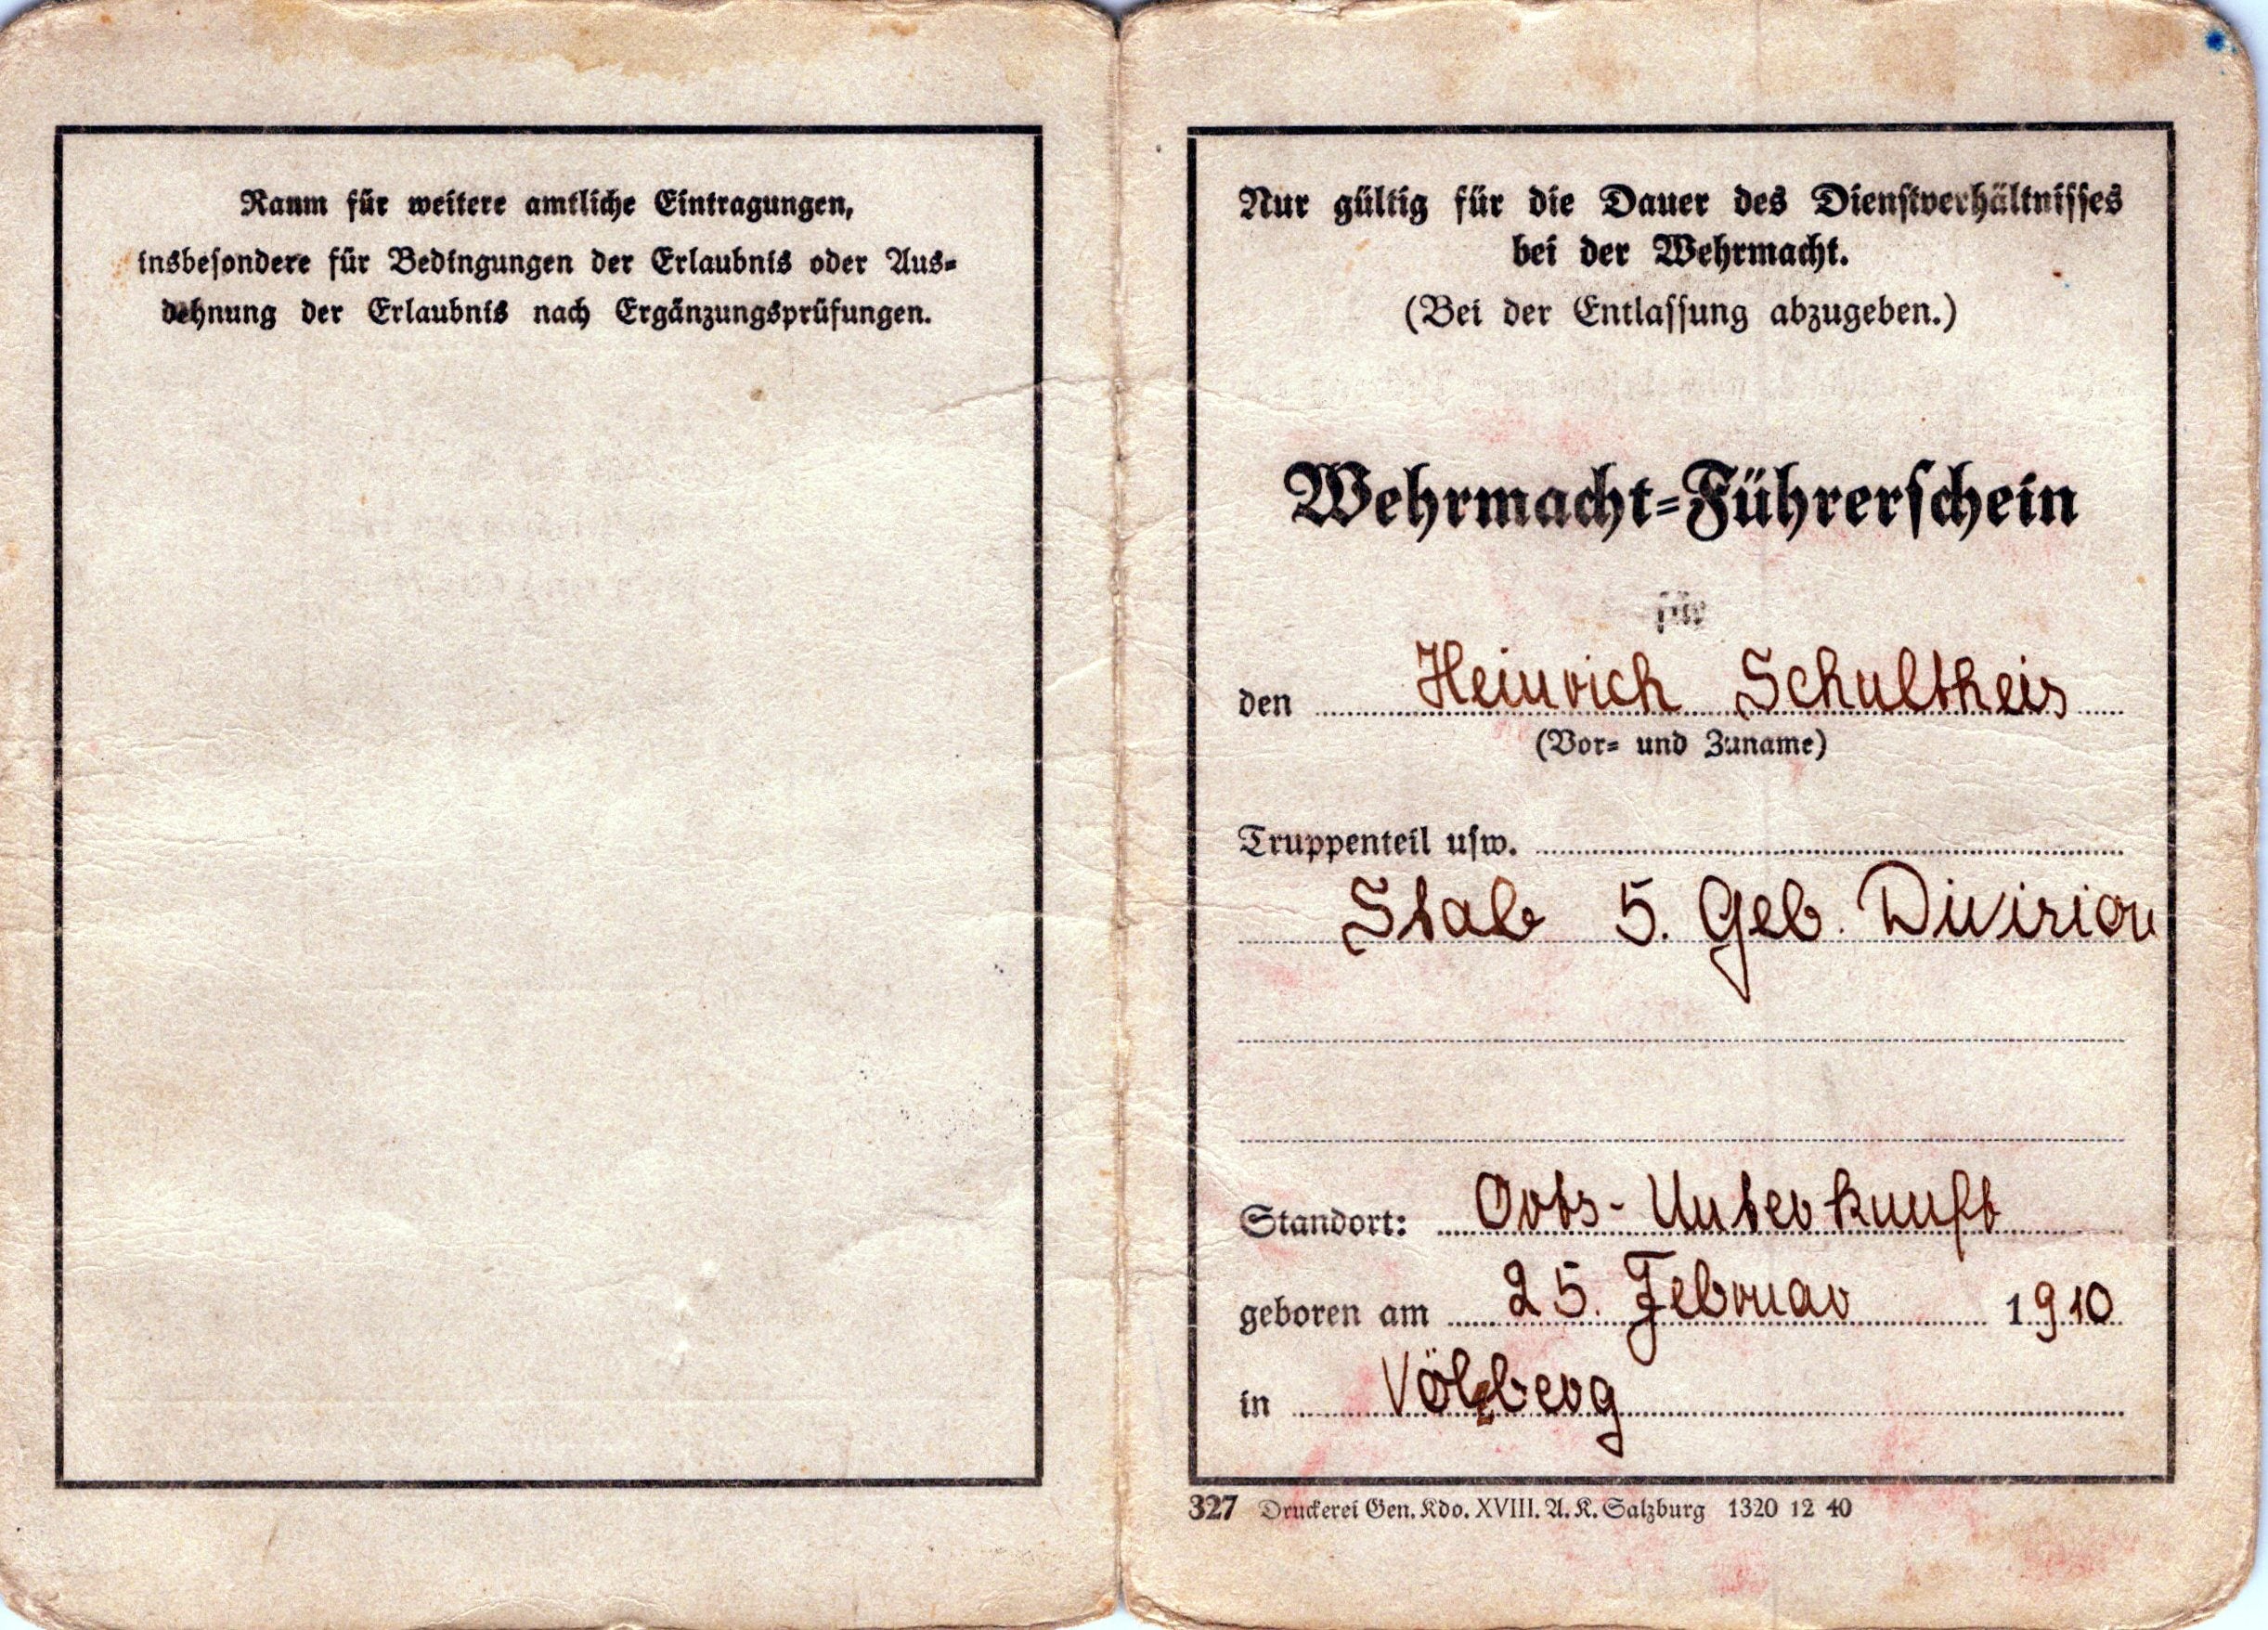 Raum für weitere amtliche Eintragungen,
insbesondere für Bedingungen der Erlaubnis oder Aus-
dehnung der Erlaubnis nach Ergänzungsprüfungen.
Nur gültig für die Dauer des Dienstverhältnisses
bei der Wehrmacht.
(Bei der Entlassung abzugeben.)
Wehrmacht-Führerschein
für
den Heinrich Schultheis
(Vor- und Zuname)
Truppenteil usw.
Stab 5. Geb. Division
Standort: Orts-Unterkunft
geboren am 25. Februar 1910
in Völzberg
327 Druckerei Gen. Kdo. XVIII. A. K. Salzburg 1320 12 40